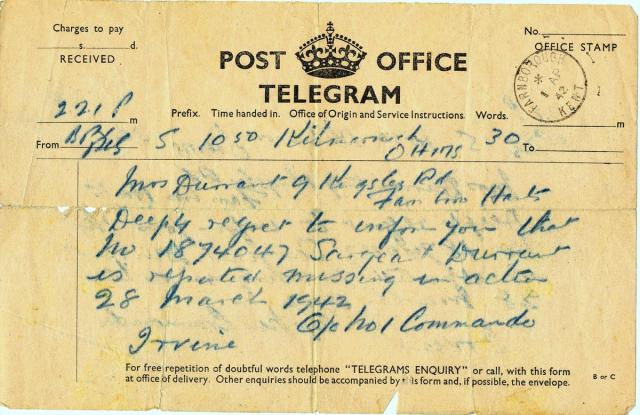 Charges to pay
s. d.
RECEIVED
POST OFFICE
TELEGRAM
No.
OFFICE STAMP
FARNBOROUGH
* 1 AP 42
KENT
Prefix. Time handed in. Office of Origin and Service Instructions. Words.
221 P m
m
From
S 1050 Kilmarnock OHMS 30
To
Mrs Durrant 9 Kingsley Rd
Farnboro
Deeply regret to inform you that
No 1874047 Sargeant Durrant
is reported missing in action
28 March 1942
O/c No 1 Commando
Irvine
For free repetition of doubtful words telephone "TELEGRAMS ENQUIRY" or call, with this form
at office of delivery. Other enquiries should be accompanied by this form and, if possible, the envelope.
B or C